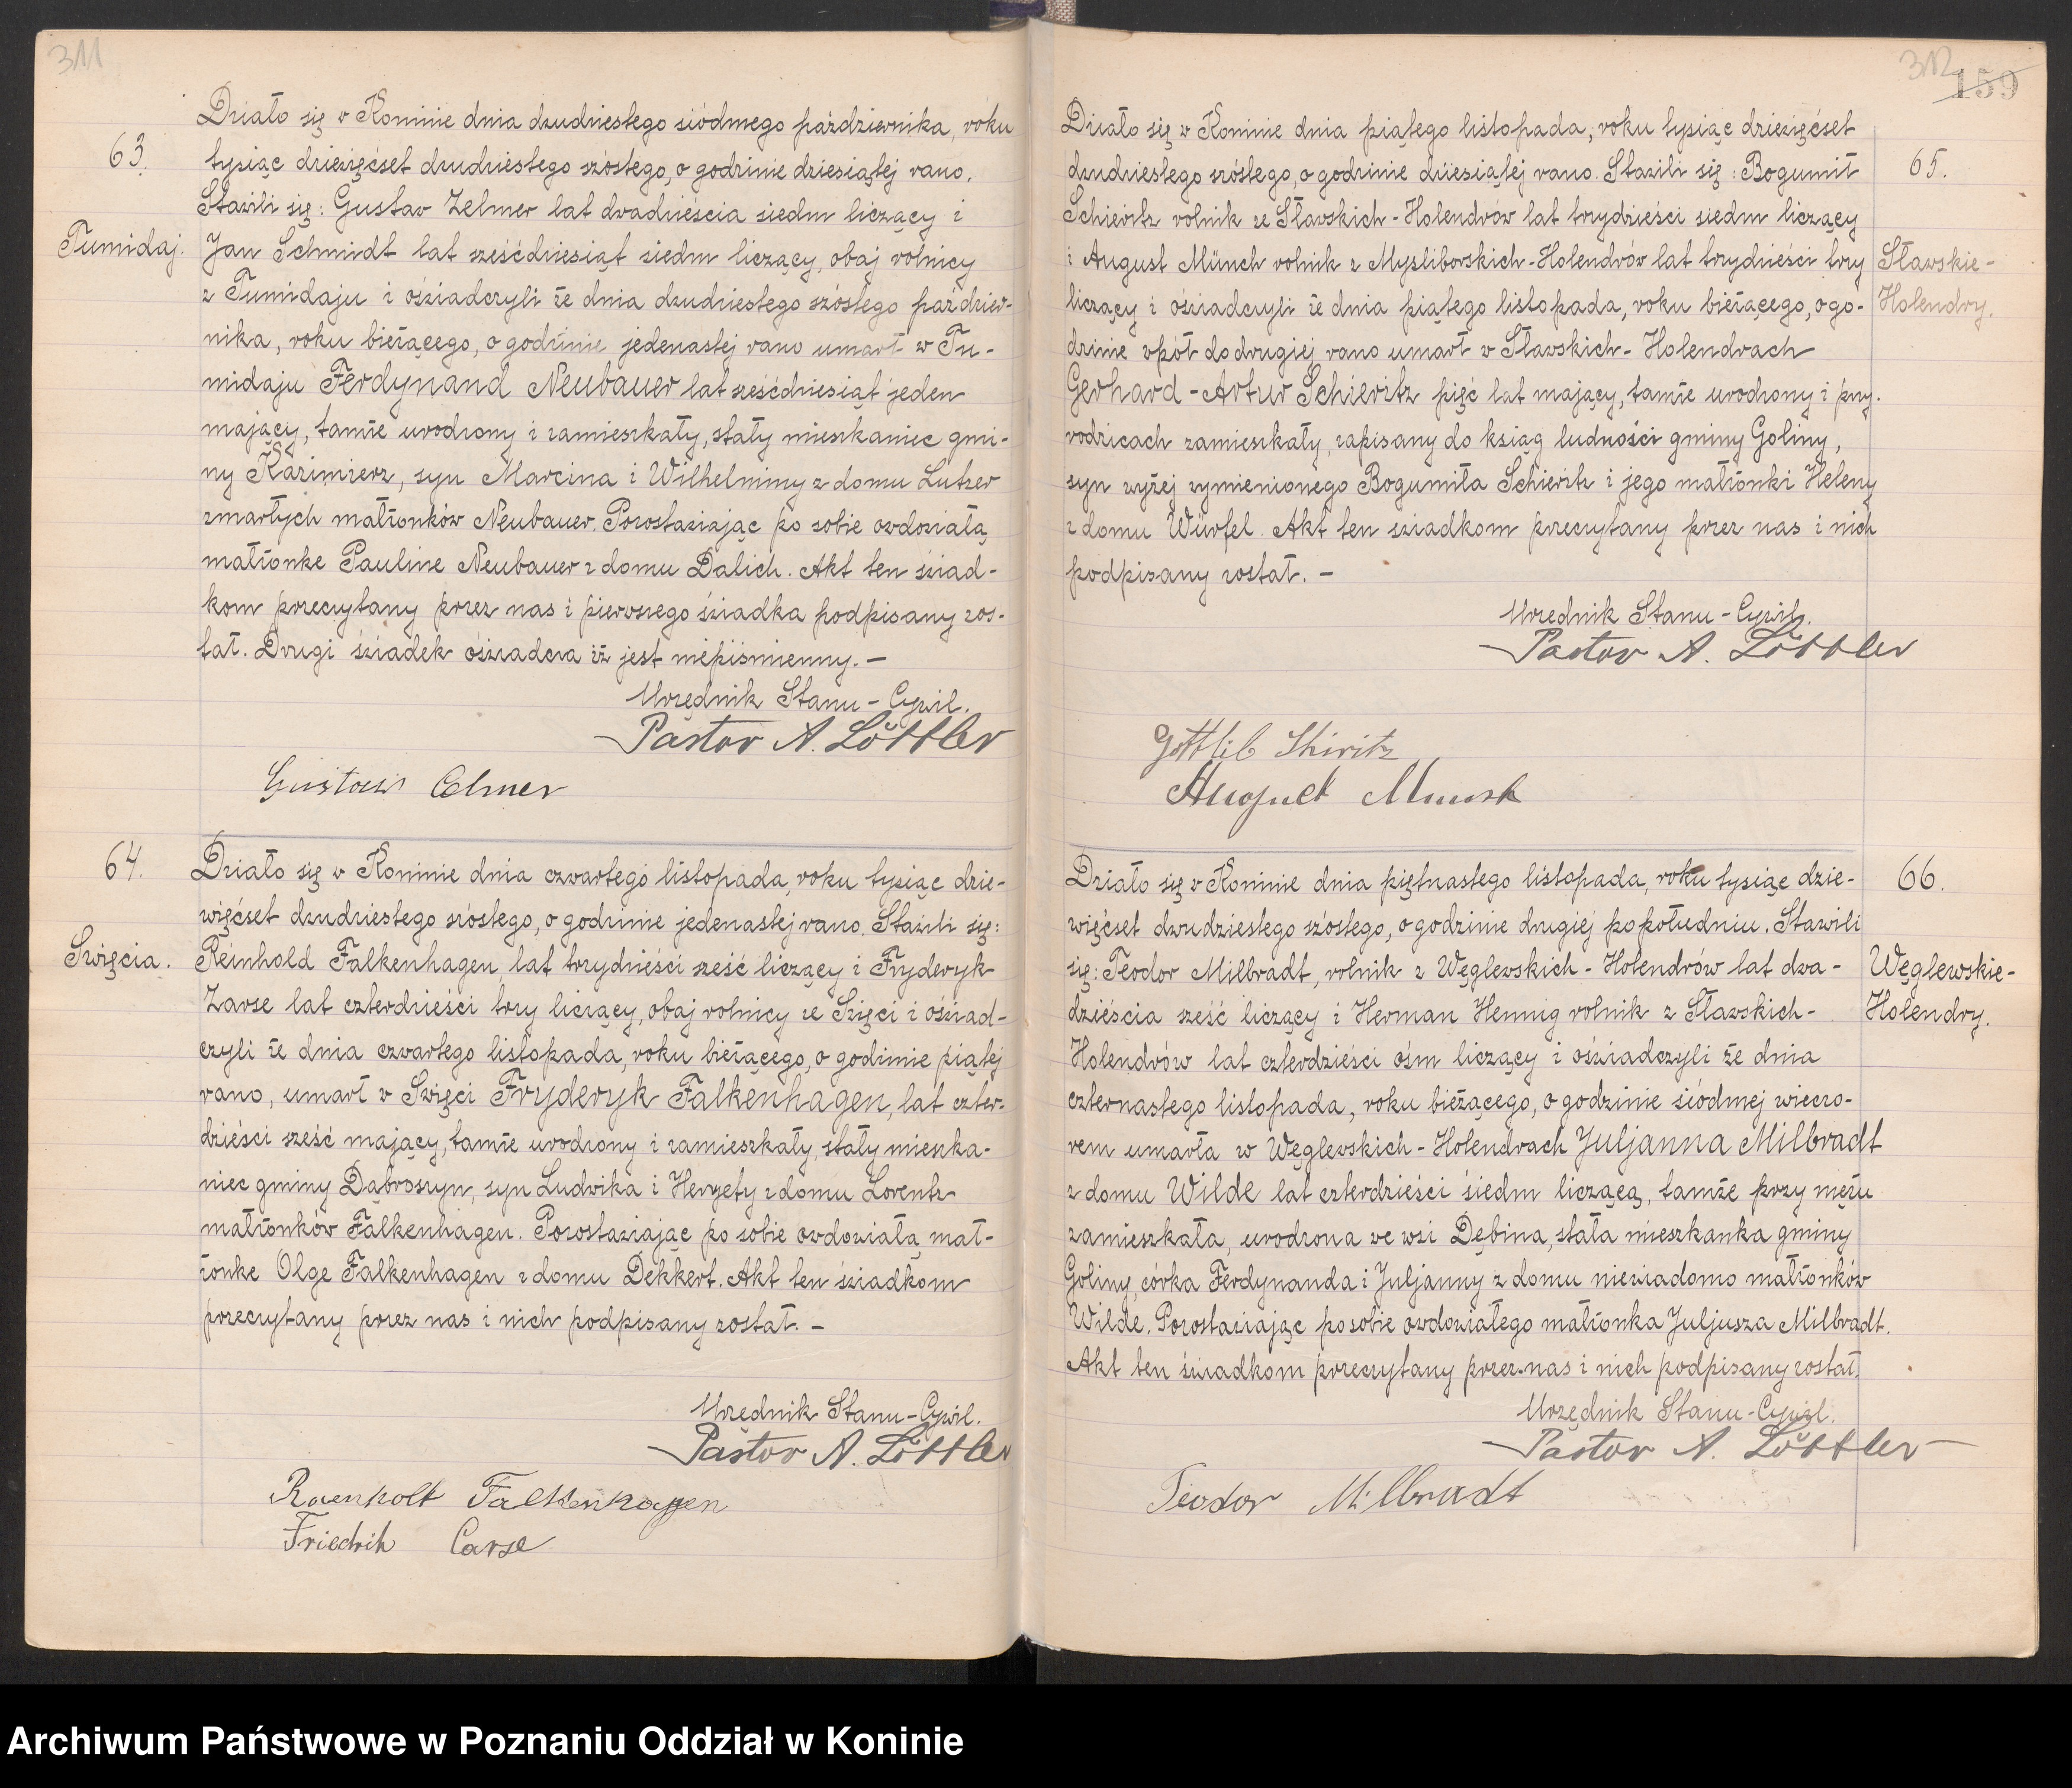 311
63.
Tumidaj.
Działo się w Koninie dnia dwudziestego siódmego października, roku
tysiąc dziewięćset dwudziestego szóstego, o godzinie dziesiątej rano.
Stawili się: Gustaw Zelmer lat dwadzieścia siedm liczący i
Jan Schmidt lat sześćdziesiąt siedm liczący, obaj rolnicy
z Tumidaju i oświadczyli że dnia dwudziestego szóstego paździer-
nika, roku bieżącego, o godzinie jedenastej rano umarł w Tu-
midaju Ferdynand Neubauer lat sześćdziesiąt jeden
mający, tamże urodzony i zamieszkały, stały mieszkaniec gmi-
ny Kazimierz, syn Marcina i Wilhelminy z domu Lutzer
zmarłych małżonków Neubauer. Pozostawiając po sobie owdowiałą
małżonkę Paulinę Neubauer z domu Dalich. Akt ten świad-
kom przeczytany przez nas i pierwszego świadka podpisany zos-
tał. Drugi świadek oświadcza iż jest niepiśmienny. —
Urzędnik Stanu-Cywil.
Pastor A. Löffler
Gustaw Celmer
64.
Swięcia.
Działo się w Koninie dnia czwartego listopada, roku tysiąc dzie-
więćset dwudziestego szóstego, o godzinie jedenastej rano. Stawili się:
Reinhold Falkenhagen, lat trzydzieści sześć liczący i Fryderyk
Zarse lat czterdzieści trzy liczący, obaj rolnicy ze Święci i oświad-
czyli że dnia czwartego listopada, roku bieżącego, o godzinie piątej
rano, umarł w Swięci Fryderyk Falkenhagen, lat czter-
dzieści sześć mający, tamże urodzony i zamieszkały, stały mieszka-
niec gminy Dąbroszyn, syn Ludwika i Heryety z domu Lorentz
małżonków Falkenhagen. Pozostawiając po sobie owdowiałą mał-
żonkę Olgę Falkenhagen z domu Dekkert. Akt ten świadkom
przeczytany przez nas i nich podpisany został. —
Urzędnik Stanu-Cywil.
Pastor A. Löffler
Raenholt Falkenhagen
Friedrih Carse
312
159
65.
Sławskie-
Holendry.
Działo się w Koninie dnia piątego listopada, roku tysiąc dziewięćset
dwudziestego szóstego, o godzinie dziesiątej rano. Stawili się: Bogumił
Schieritz rolnik ze Sławskich-Holendrów lat trzydzieści siedm liczący
i August Münch rolnik z Mysliborskich-Holendrów lat trzydzieści trzy
liczący i oświadczyli że dnia piątego listopada, roku bieżącego, o go-
dzinie wpół do drugiej rano umarł w Sławskich-Holendrach
Gerhard-Artur Schieritz pięć lat mający, tamże urodzony i przy
rodzicach zamieszkały, zapisany do ksiąg ludności gminy Goliny,
syn wyżej wymienionego Bogumiła Schieritz i jego małżonki Heleny
z domu Würfel. Akt ten świadkom przeczytany przez nas i nich
podpisany został. —
Urzędnik Stanu-Cywil.
Pastor A. Löffler
Gottlib Shiritz
August Munsh
66.
Węglewskie-
Holendry.
Działo się w Koninie dnia piętnastego listopada, roku tysiąc dzie-
więćset dwudziestego szóstego, o godzinie drugiej po południu. Stawili
się: Teodor Milbradt, rolnik z Węglewskich-Holendrów lat dwa-
dzieścia sześć liczący i Herman Hennig rolnik z Sławskich-
Holendrów lat czterdzieści ośm liczący i oświadczyli że dnia
czternastego listopada, roku bieżącego, o godzinie siódmej wieczo-
rem umarła w Węglewskich-Holendrach Juljanna Milbradt
z domu Wilde lat czterdzieści siedm liczącą, tamże przy mężu
zamieszkała, urodzona we wsi Dębina, stała mieszkanka gminy
Goliny, córka Ferdynanda i Juljanny z domu niewiadomo małżonków
Wilde. Pozostawiając po sobie owdowiałego małżonka Juljusza Milbradt.
Akt ten świadkom przeczytany przez nas i nich podpisany został.
Urzędnik Stanu-Cywil.
Pastor A. Löffler
Teodor Milbradt
Archiwum Państwowe w Poznaniu Oddział w Koninie